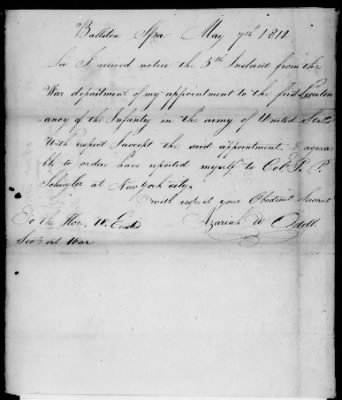 Ballston Spa May 7th 1812
Sir I received notice the 5th Instant from the
War department of my appointment to the first Lieuten
ancy of the Infantry in the army of United States
With respect I accept the said appointment, & agrea
bly to orders have reported myself to Col. P. P.
Schuyler at New York city.
with respect your Obedient Servant
To the Hon. W. Eustis Azariah W Odell
Secy of War